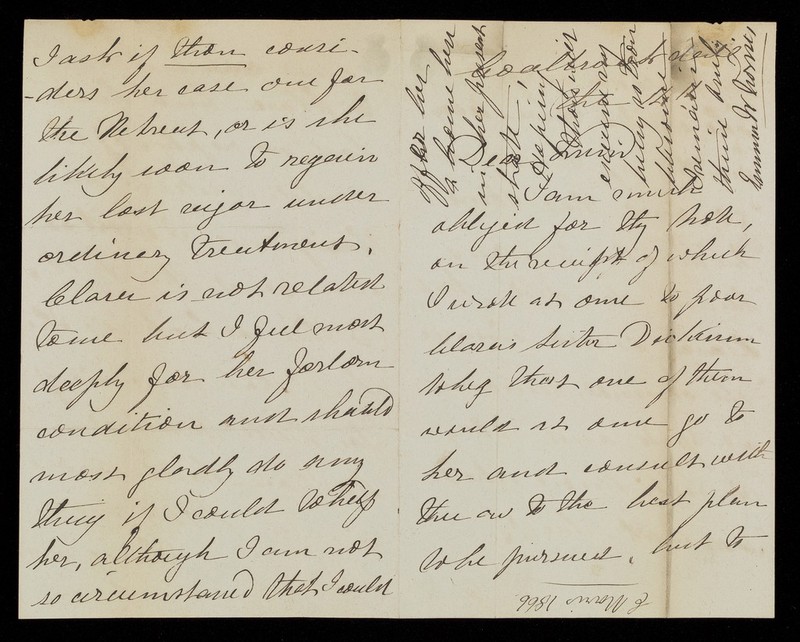 Dear Friend
I am much
obliged for thy note,
on the receipt of which
I wrote at once to poor
Clara's sister Dickinson
to beg that one of them
would at once go to
her and consult with
thee as to the best plan
to be pursued, but to
I ask if thou consi-
-ders her case one for
the Retreat, or is she
likely soon to regain
her lost vigor under
ordinary treatment.
Clara is not related
to me but I feel most
deeply for her forlorn
condition and should
most gladly do any
thing if I could to help
her, although I am not
so circumstanced that I could
offer her
a home here
in her present
state,
Hoping
thou wilt
excuse my
being so
I remain
thine truly
E Morris 1866